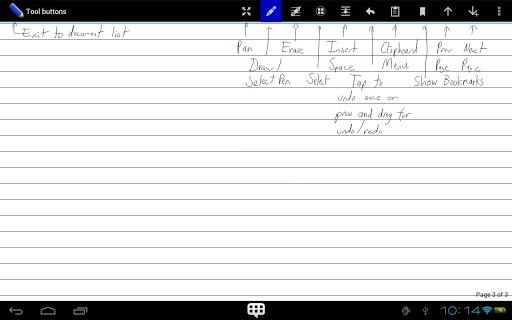 Tool buttons
Exit to document list
Pan Erase Insert Clipboard Prev Next
Draw/ Space Menu Page Page
Select Pen Select Tap to Show Bookmarks
undo once or
press and drag for
undo/redo
Page 3 of 3
10:14